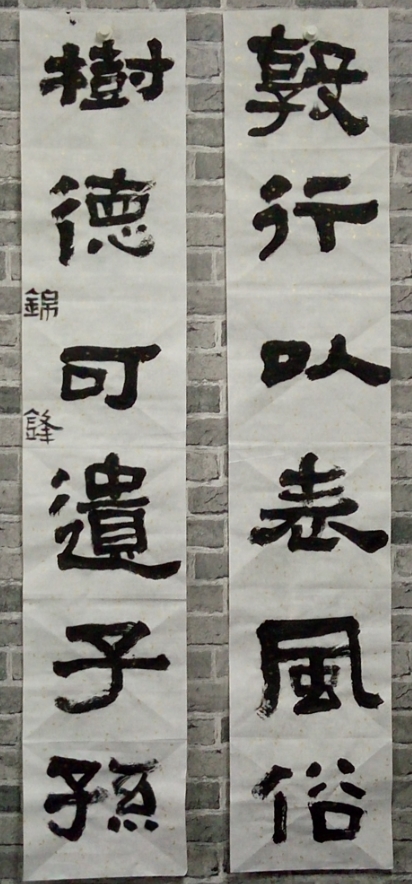 敦行以表風俗
樹德可遺子孫
錦鋒